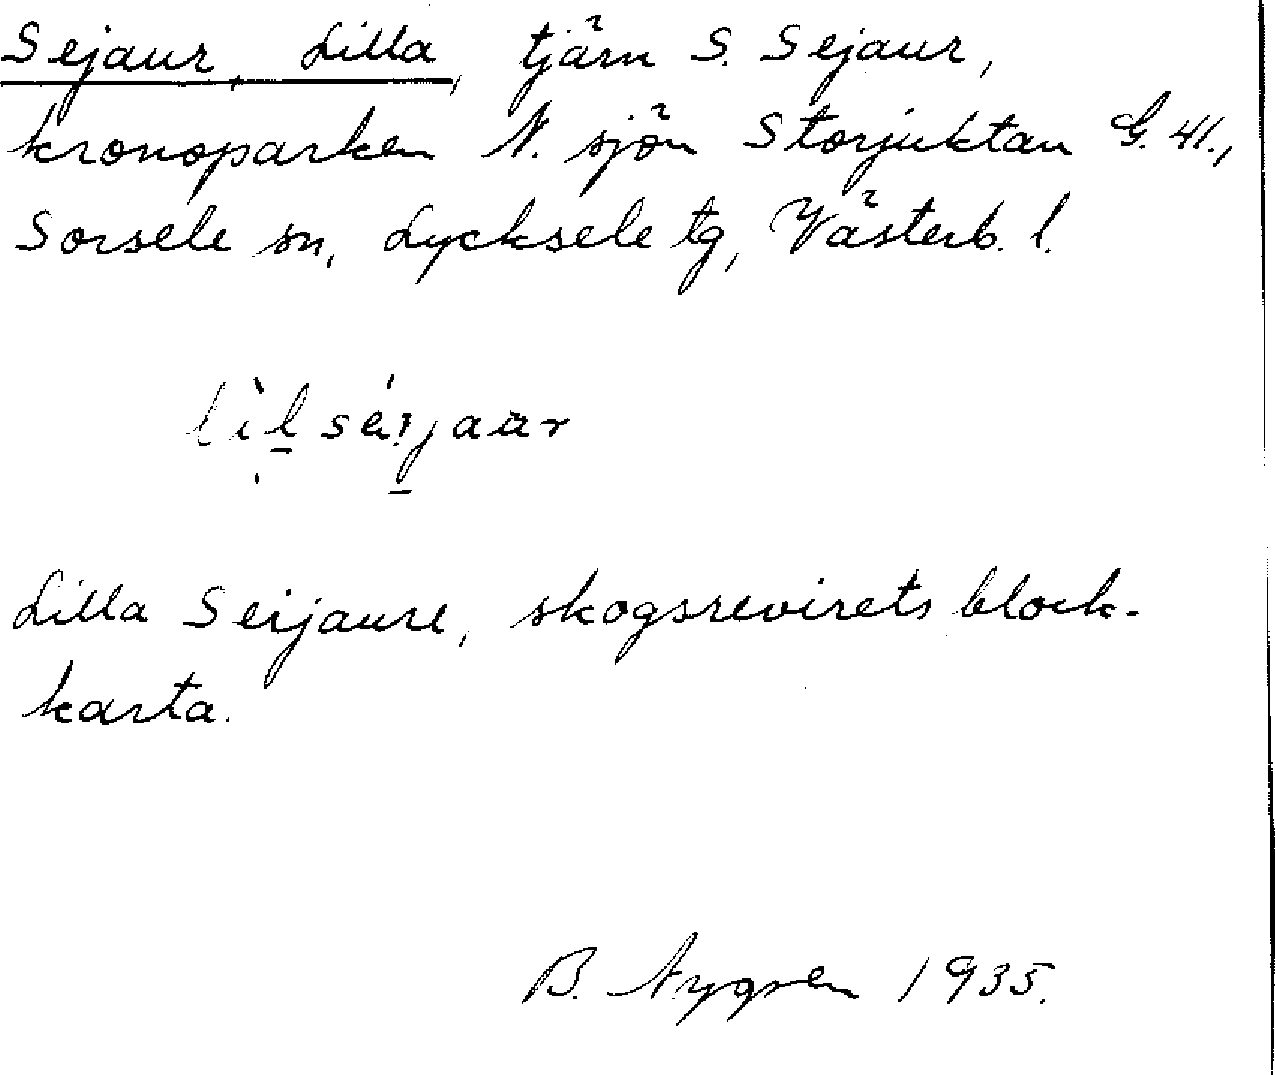 Sejaur, Lilla, tjärn S. Sejaur,
kronoparken N. sjön Storjuktan G. 41.,
Sorsele sn, Lycksele tg, Västerb. l.
Lilla Seijaure, skogsrevirets block-
karta.
B. Nygren 1935.